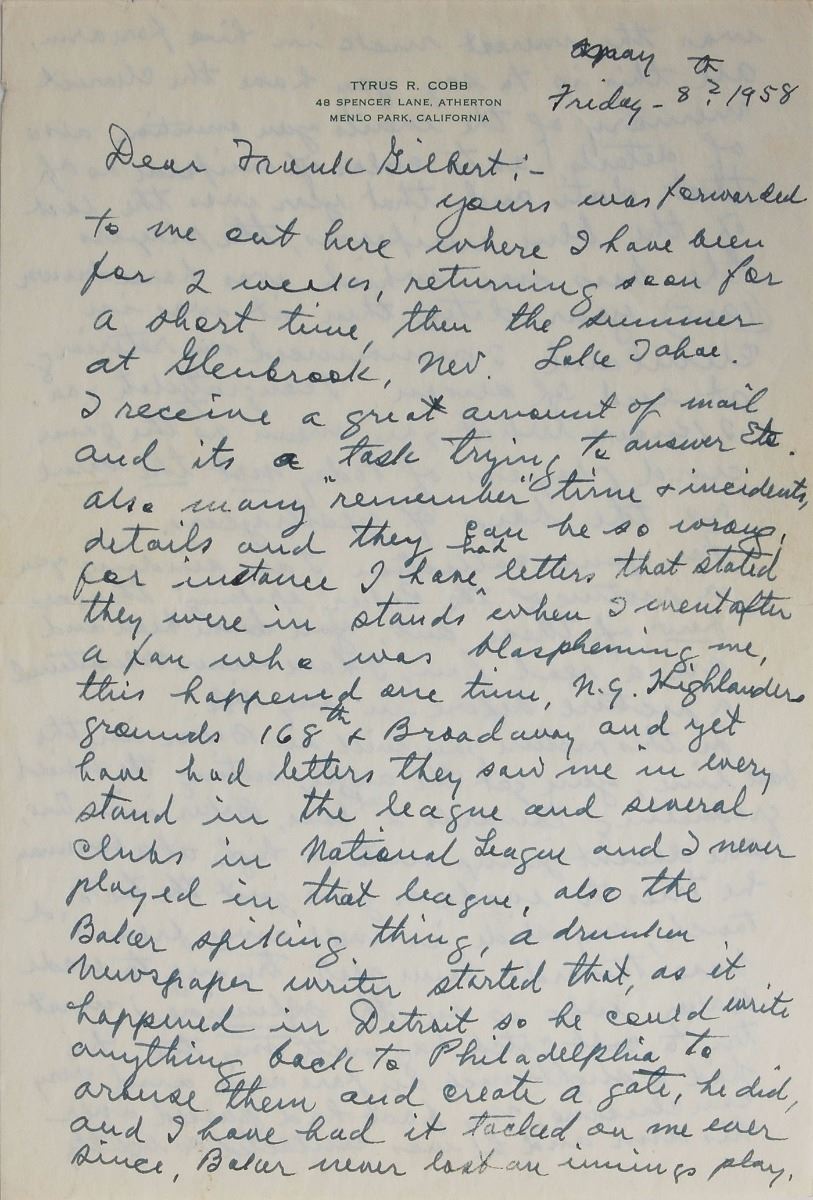 May th
TYRUS R. COBB
48 SPENCER LANE, ATHERTON
MENLO PARK, CALIFORNIA
Friday - 8? 1958
Dear Frank Gilbert:-
yours was forwarded
to me out here where I have been
for 2 weeks, returning soon for
a short time, then the summer
at Glenbrook, Nev. Lake Tahoe.
I receive a great amount of mail
and its a task trying to answer etc.
also many "remember" time & incidents,
details and they can be so wrong,
for instance I have had letters that stated
they were in stands "when I went after
a fan who was blaspheming me,
this happened one time, N.Y. Highlanders
grounds 168th & Broadway and yet
have had letters they saw me in every
stand in the league and several
clubs in National League and I never
played in that league, also the
Baker spiking thing, a drunken
newspaper writer started that, as it
happened in Detroit so he could write
anything back to Philadelphia to
arouse them and create a gate, he did,
and I have had it tacked on me ever
since, Baker never lost an innings play.